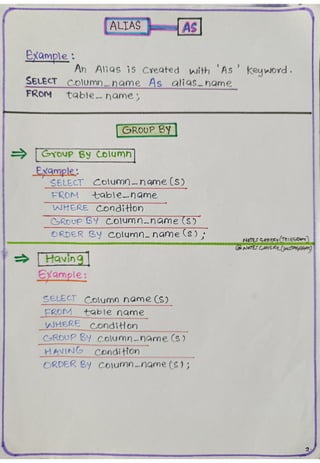 ALIAS AS
Example:
An Alias is created with 'As' keyword.
SELECT column_name As alias_name
FROM table_name;
GROUP BY
⇒ Group By Column
Example:
SELECT column_name(s)
FROM table_name
WHERE condition
GROUP BY column_name(s)
ORDER BY column_name(s);
⇒ Having
Example:
SELECT column name(s)
FROM table name
WHERE condition
GROUP BY column_name(s)
HAVING condition
ORDER BY column_name(s);